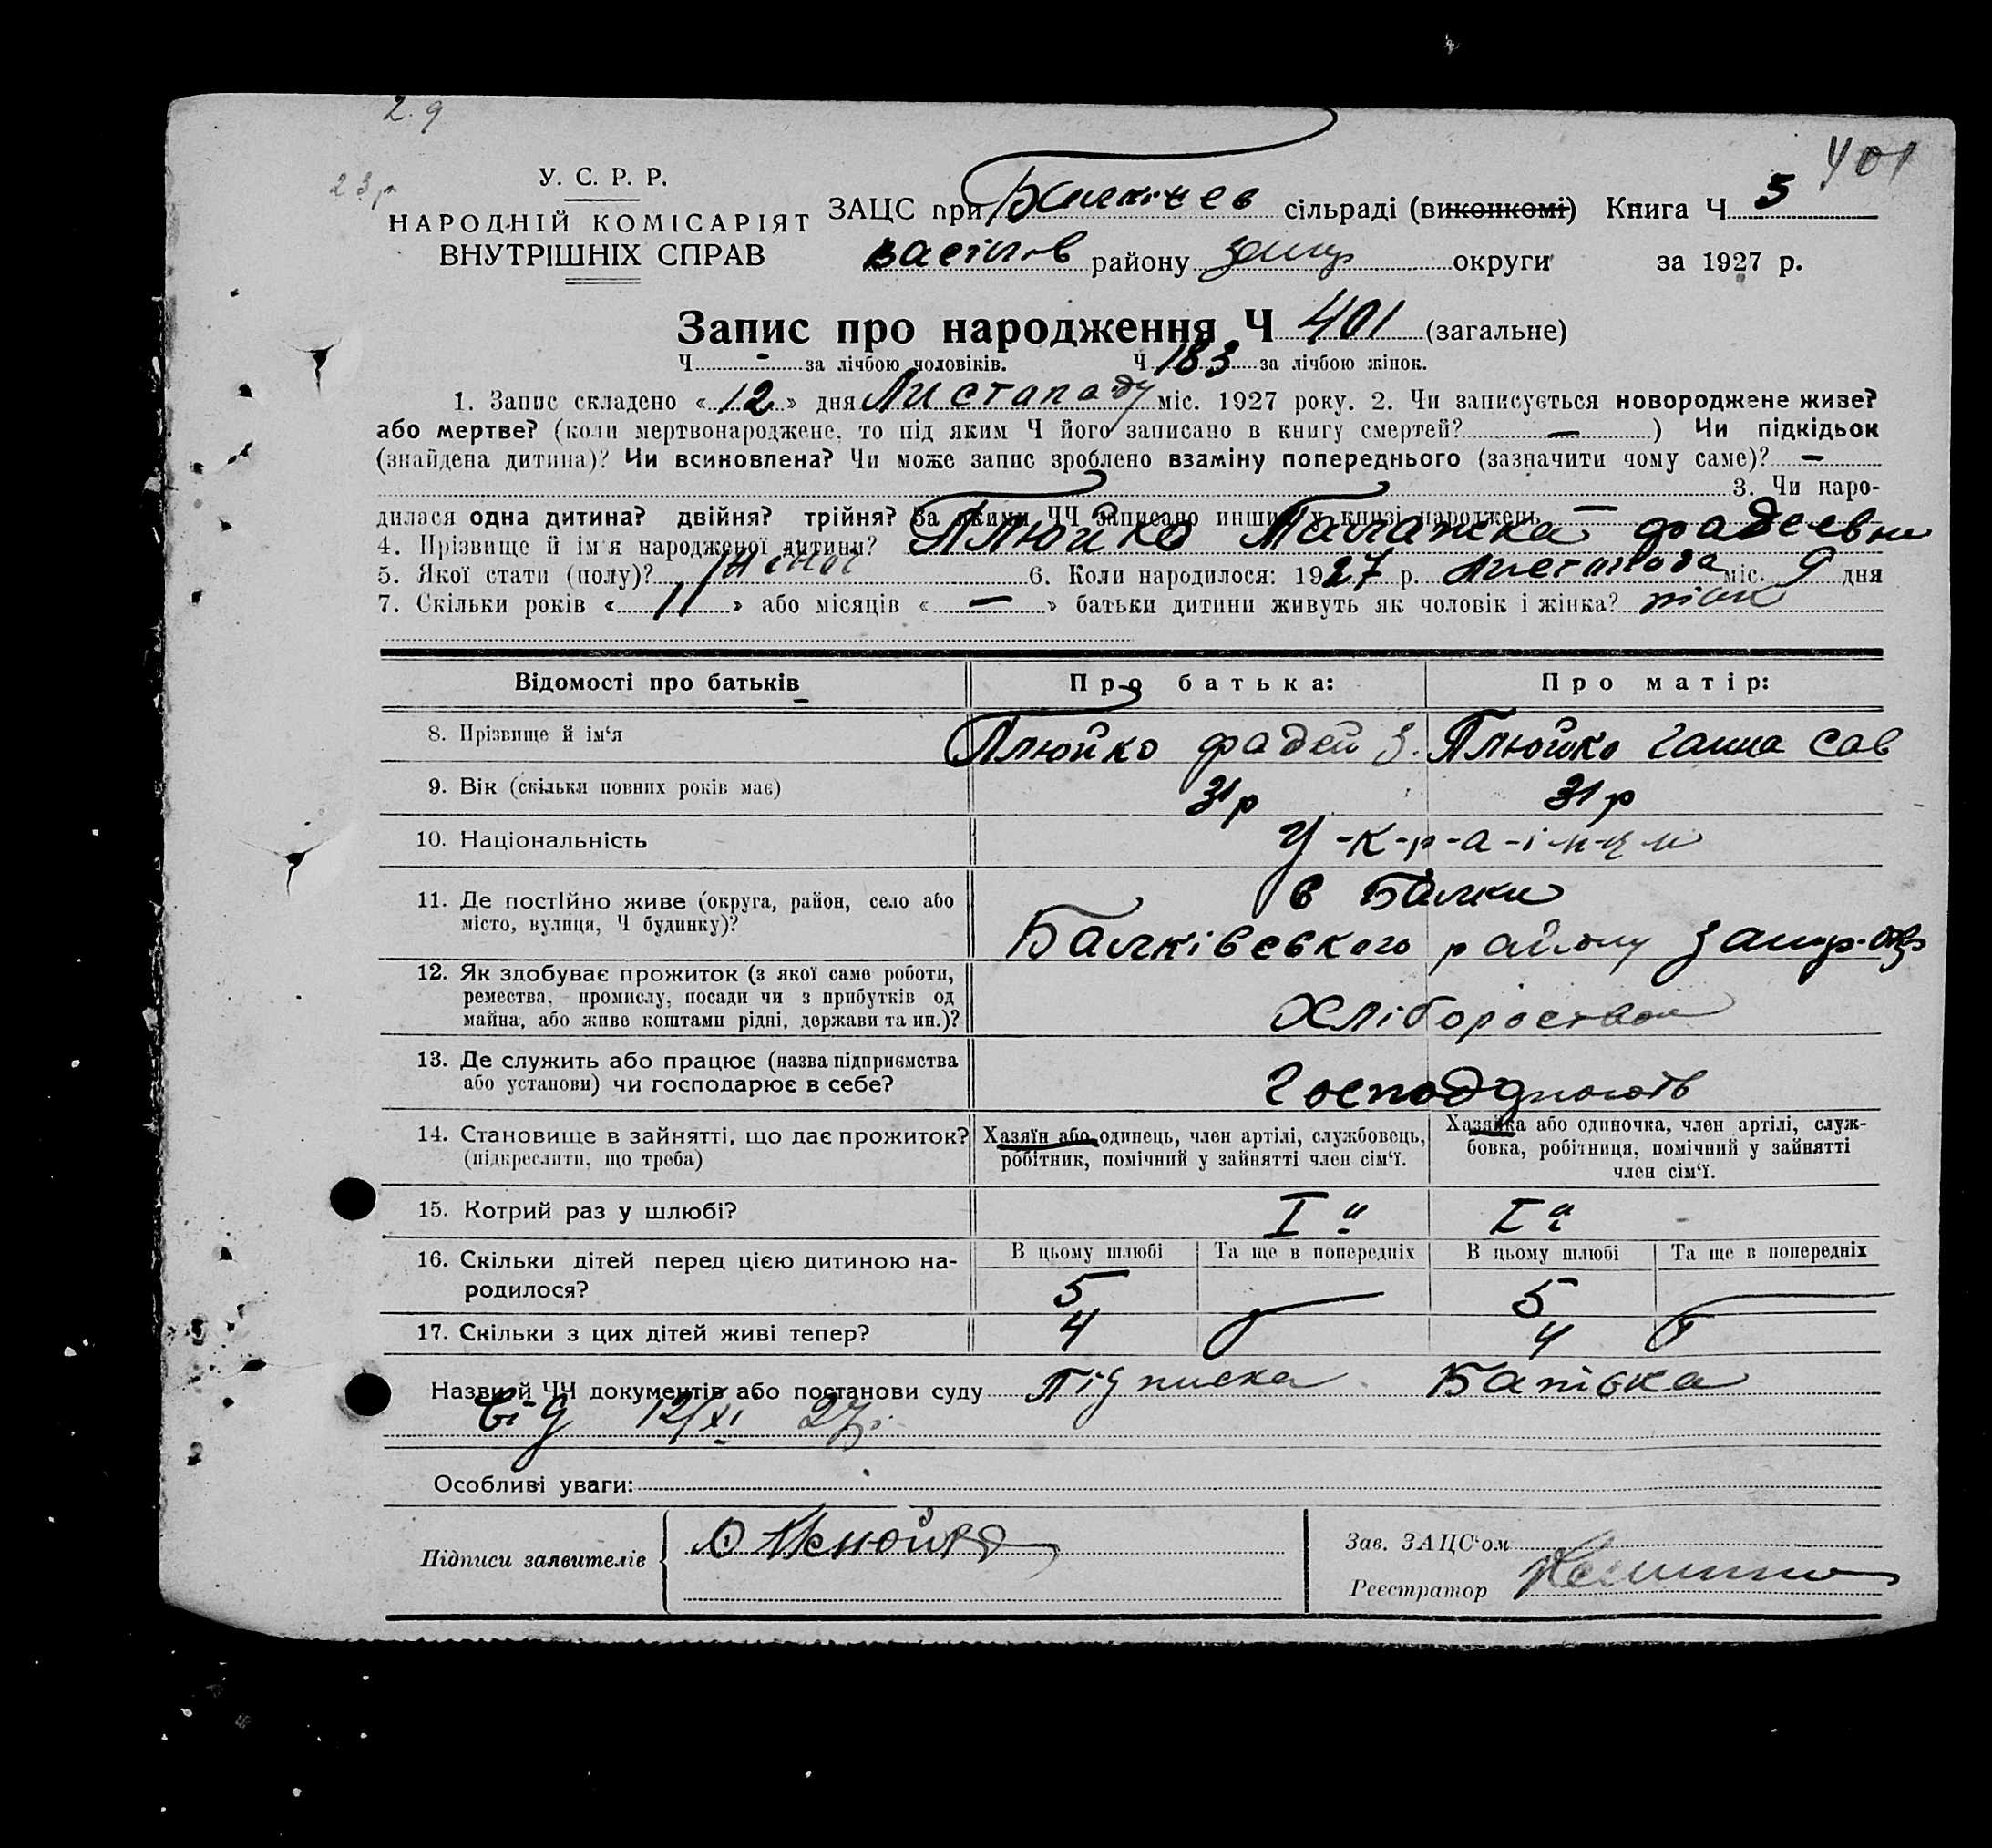 2.9
23р
401
У. С. Р. Р.
НАРОДНІЙ КОМІСАРІЯТ
ВНУТРІШНІХ СПРАВ
ЗАЦС при Балківсв сільраді (виконкомі) Книга Ч 5
Васілів району Запор округи за 1927 р.
Запис про народження Ч 401 (загальне)
Ч - за лічбою чоловіків. Ч 183 за лічбою жінок.
1. Запис складено «12» дня Листопаду міс. 1927 року. 2. Чи записується новороджене живе?
або мертве? (коли мертвонароджене, то під яким Ч його записано в книгу смертей? — ) Чи підкідьок
(знайдена дитина)? Чи всиновлена? Чи може запис зроблено взаміну попереднього (зазначити чому саме)? —
3. Чи наро-
дилася одна дитина? двійня? трійня? За якими ЧЧ записано инших у книзі народжень —
4. Прізвище й ім'я народженої дитини? Плюйко Палажка Фадеевна
5. Якої стати (полу)? жіноч 6. Коли народилося: 1927 р. листопада міс. 9 дня
7. Скільки років «11» або місяців «—» батьки дитини живуть як чоловік і жінка?
Відомості про батьків Про батька: Про матір:
8. Прізвище й ім'я Плюйко Фадей З. Плюйко Ганна Сав
9. Вік (скільки повних років має) 31 р 31 р
10. Національність У-к-р-а-і-н-ц-и
11. Де постійно живе (округа, район, село або
місто, вулиця, Ч будинку)?
в Балки
Балківсвкого району Запор. окр
12. Як здобуває прожиток (з якої саме роботи,
ремества, промислу, посади чи з прибутків од
майна, або живе коштами рідні, держави та ин.)?
Хліборобством
13. Де служить або працює (назва підприємства
або установи) чи господарює в себе?
Господарюють
14. Становище в зайнятті, що дає прожиток?
(підкреслити, що треба)
Хазяїн або одинець, член артілі, службовець,
робітник, помічний у зайнятті член сім'ї.
Хазяйка або одиночка, член артілі, служ-
бовка, робітниця, помічний у зайнятті
член сім'ї.
15. Котрий раз у шлюбі? Iй Iа
16. Скільки дітей перед цією дитиною на-
родилося?
В цьому шлюбі Та ще в попередніх В цьому шлюбі Та ще в попередніх
5 — 5 —
17. Скільки з цих дітей живі тепер? 4 4
Назви й ЧЧ документів або постанови суду Підписка Батівка
від 12/XI 27р.
Особливі уваги:
Підписи заявителів Плюйко
Зав. ЗАЦС'ом
Реєстратор